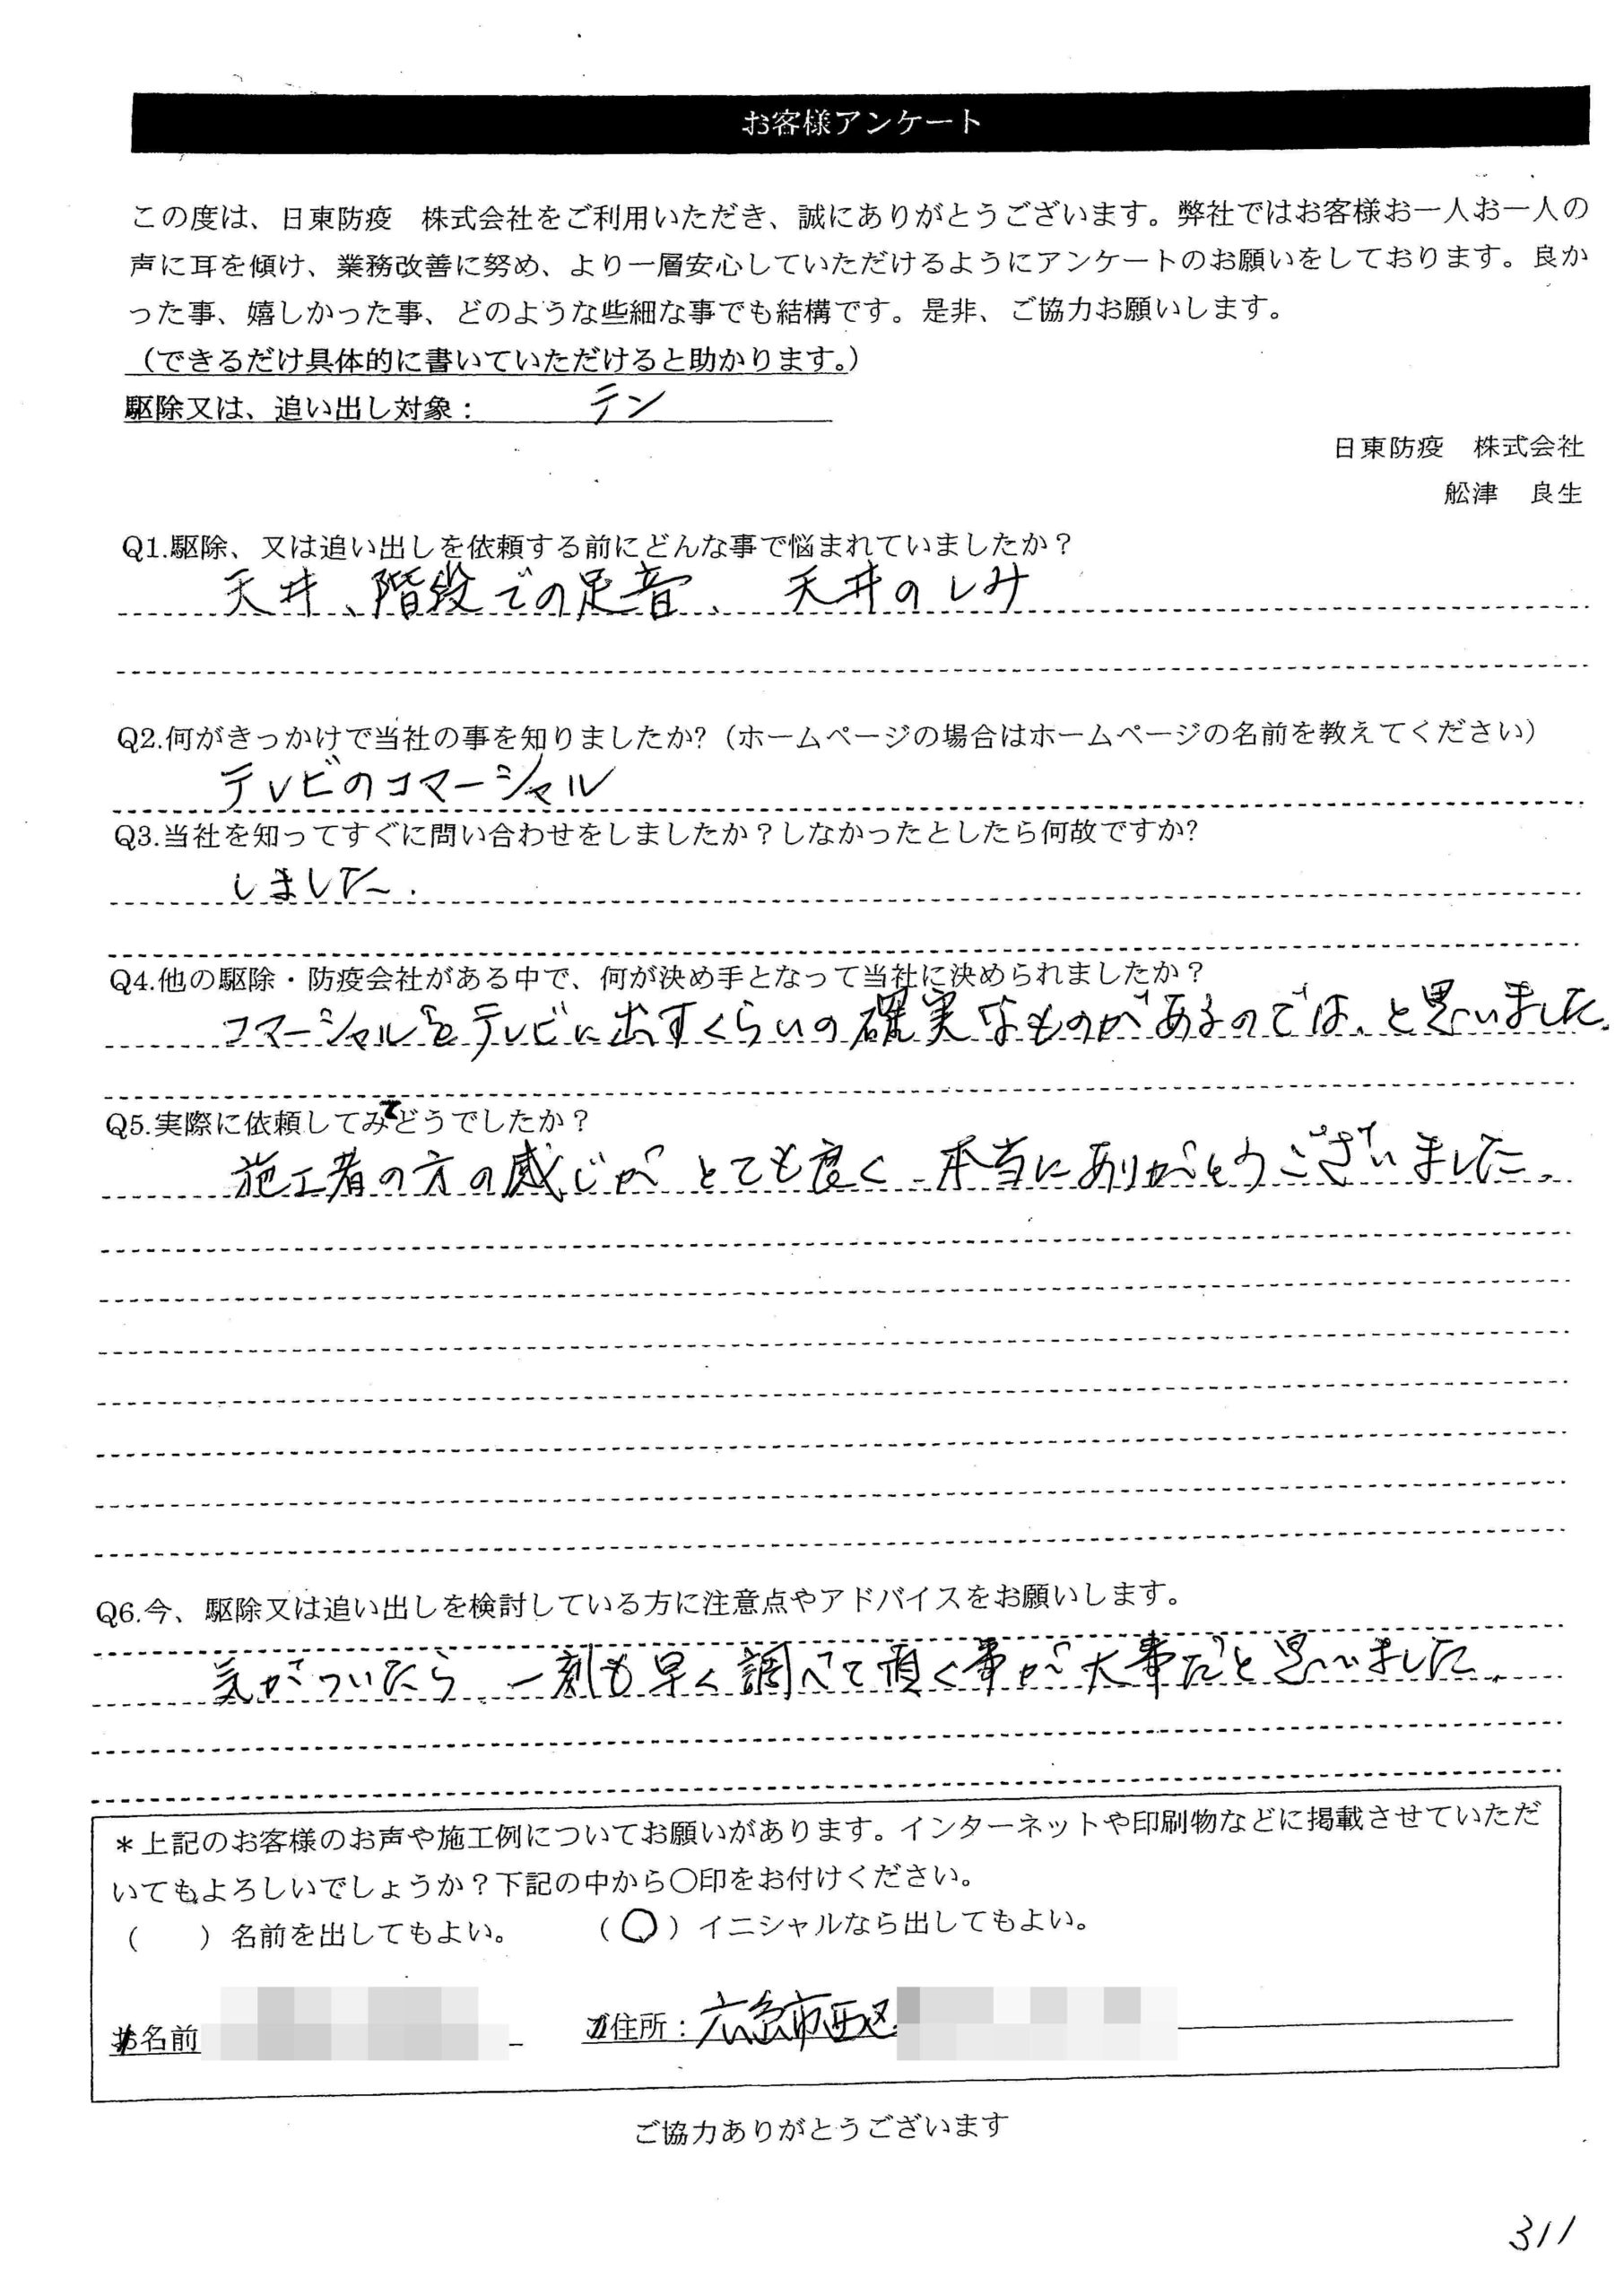 お客様アンケート
この度は、日東防疫　株式会社をご利用いただき、誠にありがとうございます。弊社ではお客様お一人お一人の
声に耳を傾け、業務改善に努め、より一層安心していただけるようにアンケートのお願いをしております。良か
った事、嬉しかった事、どのような些細な事でも結構です。是非、ご協力お願いします。
（できるだけ具体的に書いていただけると助かります。）
駆除又は、追い出し対象：　テン
日東防疫　株式会社
舩津　良生
Q1.駆除、又は追い出しを依頼する前にどんな事で悩まれていましたか？
天井、階段での足音、天井のしみ
Q2.何がきっかけで当社の事を知りましたか?（ホームページの場合はホームページの名前を教えてください）
テレビのコマーシャル
Q3.当社を知ってすぐに問い合わせをしましたか？しなかったとしたら何故ですか?
しました.
Q4.他の駆除・防疫会社がある中で、何が決め手となって当社に決められましたか？
コマーシャルをテレビに出すくらいの確実なものがあるのでは、と思いました.
Q5.実際に依頼してみてどうでしたか？
施工者の方の感じがとても良く、本当にありがとうございました。
Q6.今、駆除又は追い出しを検討している方に注意点やアドバイスをお願いします。
気がついたら、一刻も早く調べて頂く事が大事だと思いました。
＊上記のお客様のお声や施工例についてお願いがあります。インターネットや印刷物などに掲載させていただ
いてもよろしいでしょうか？下記の中から○印をお付けください。
（　　）名前を出してもよい。　　（○）イニシャルなら出してもよい。
お名前　　ご住所：広島市西区
ご協力ありがとうございます
311